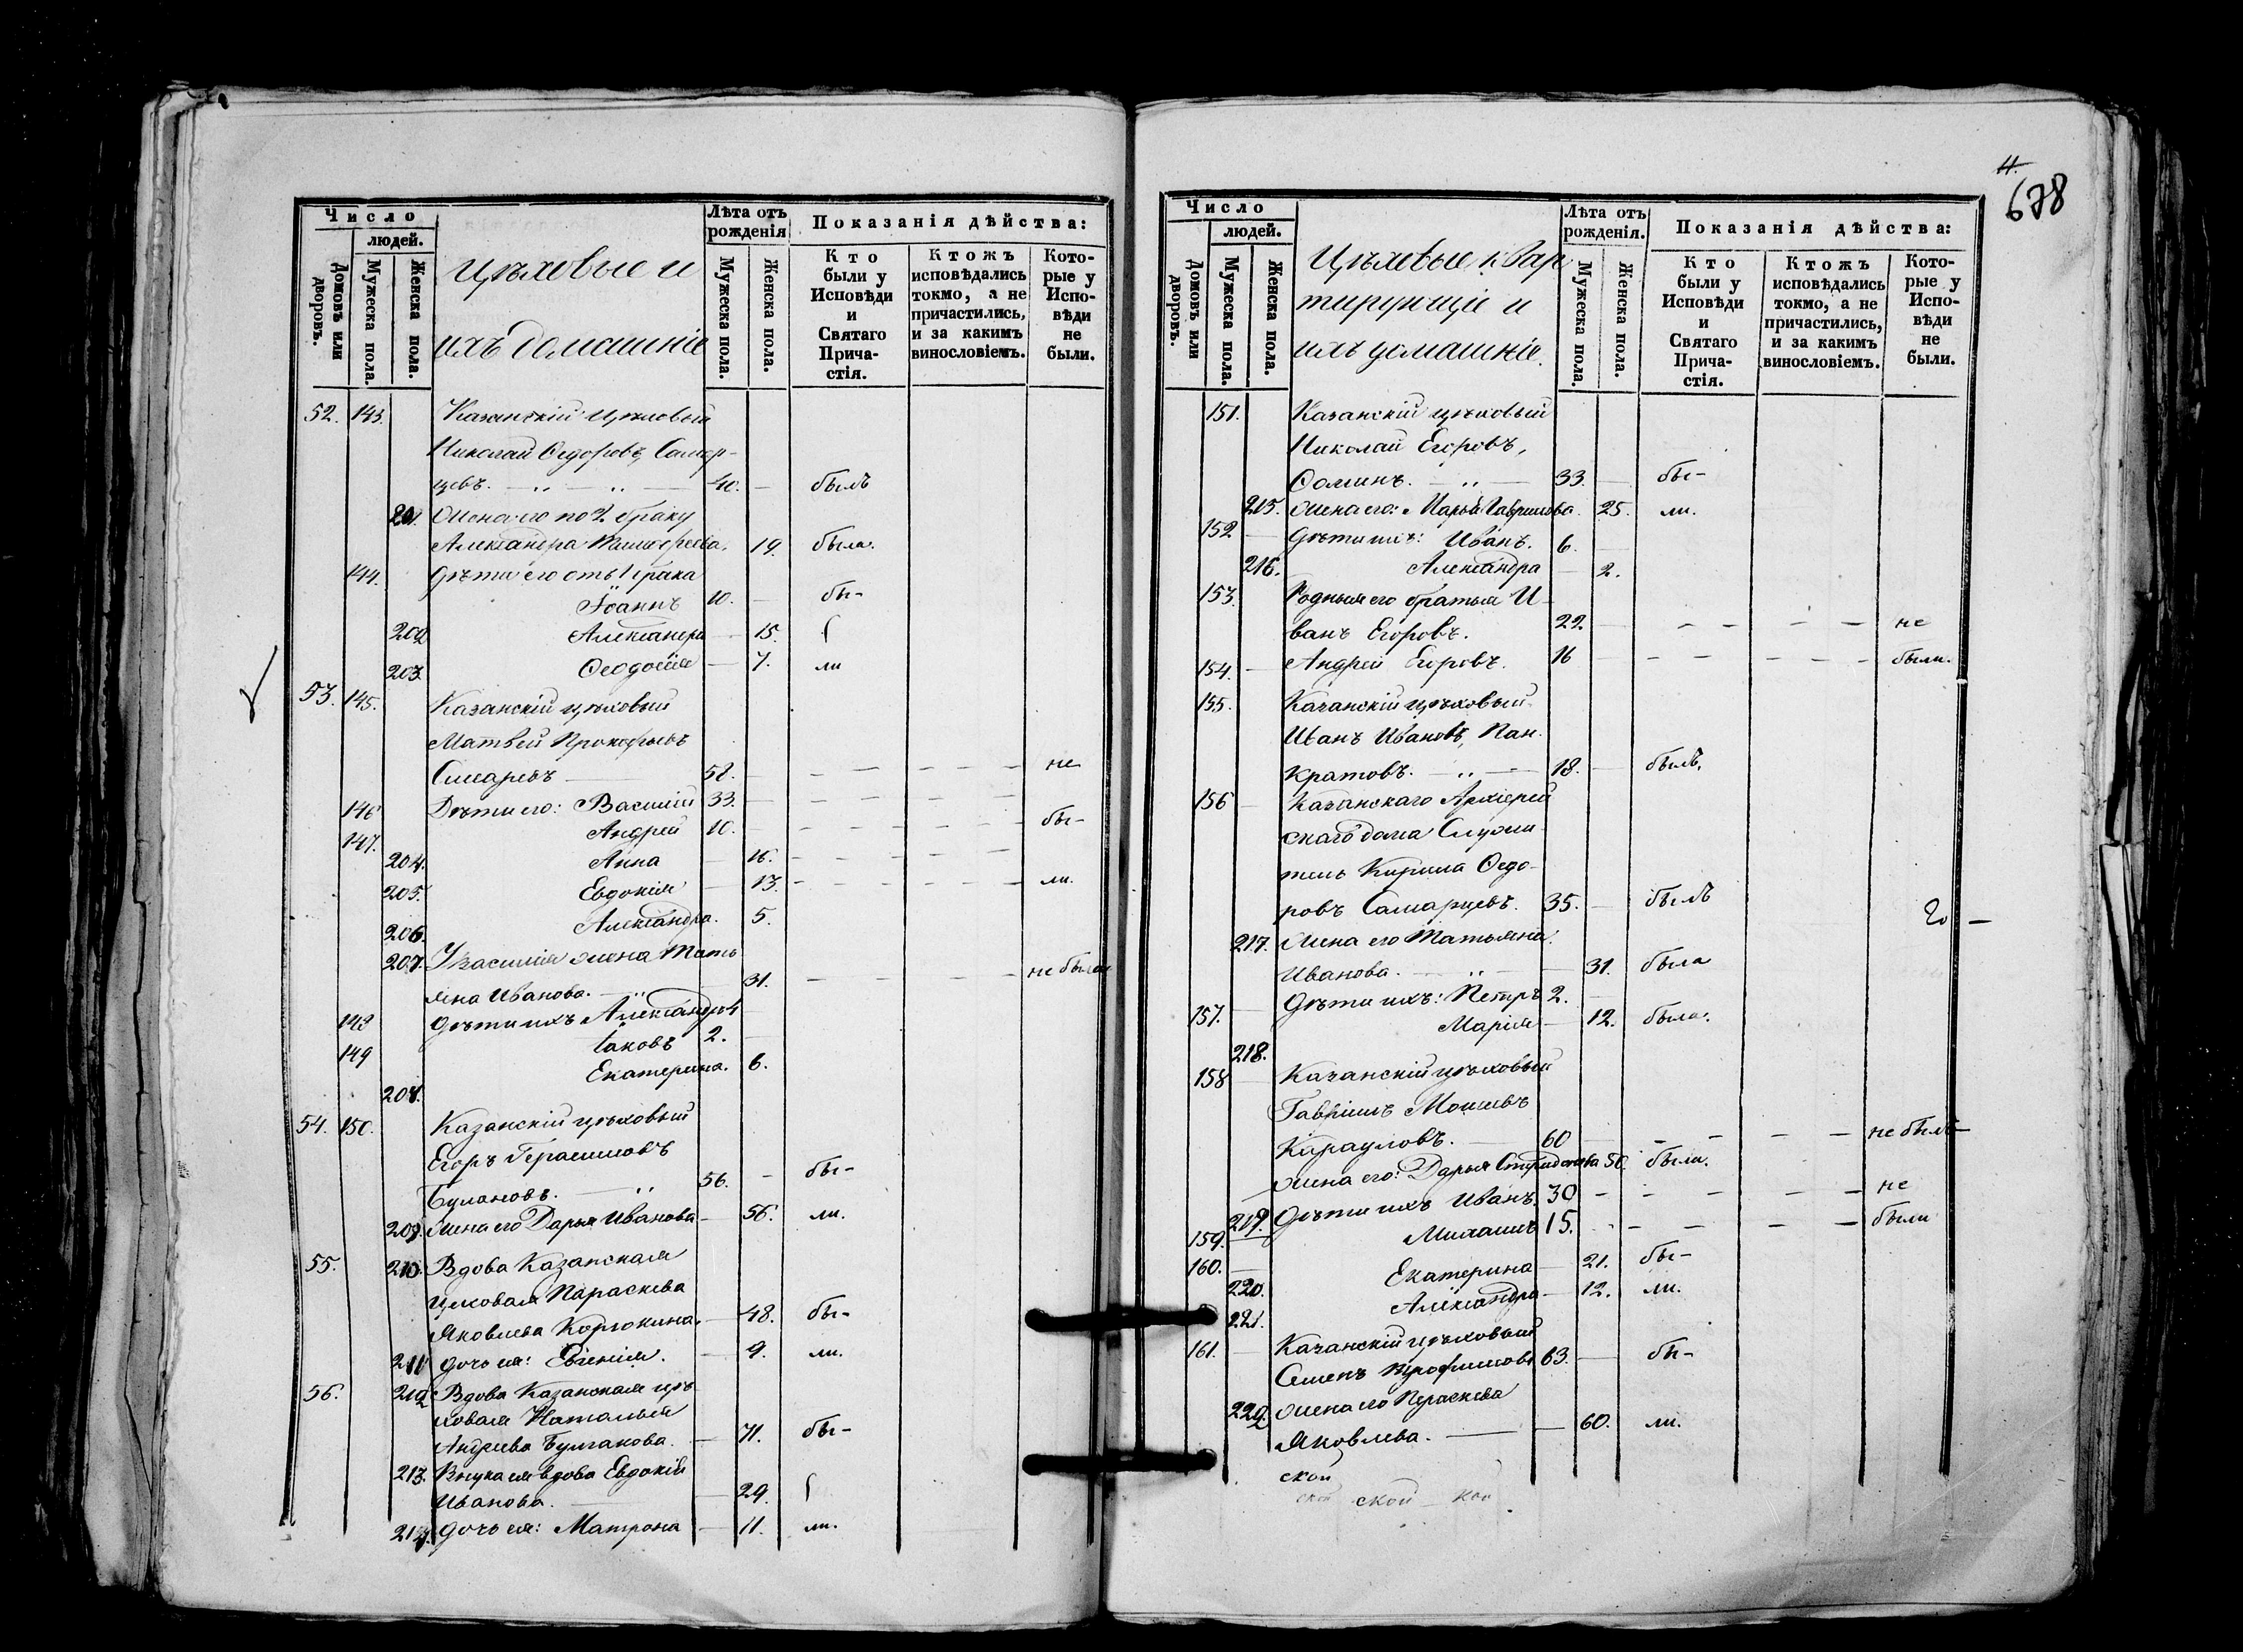 Число
людей.
Домовъ или дворовъ.
Мужеска пола.
Женска пола.
Цѣховые и
ихъ домашніе
Лѣта отъ рожденія
Мужеска пола.
Женска пола.
Показанія дѣйства:
Кто были у Исповѣди и Святаго Прича-стія.
Ктожъ исповѣдались токмо, а не причастились, и за какимъ винословіемъ.
Кото-рые у Испо-вѣди не были.
52. 143. Казанскій цѣховый
Николай Ѳедоровъ, Самар-
цевъ. 40. — былъ
201. Жена его по 2 браку
Александра Тимофеева. 19. была.
144. Дѣти его отъ 1 брака
Іоаннъ 10. — бы-
202 Александра — 15.
203. Ѳеодосія — 7. ли
53. 145. Казанскій цѣховый
Матвей Прокофьевъ
58. — не
146 Дѣти его: Василій 33. —
147. Андрей 10. — бы-
204. Анна — 16.
205. Евдокія — 13. ли.
206. Александра. 5.
207. У Василія жена Тать
яна Иванова. 31. не была
148 Дѣти ихъ Александръ 4
149 Іаковъ 2. —
208. Екатерина. 6.
54. 150. Казанскій цѣховый
Егоръ Герасимовъ
Булановъ. 56. — бы-
209. Жена его Дарья Иванова — 56. ли.
55. 210. Вдова Казанская
цеховая Параскева
Яковлева Корюкина. 48. бы-
211 Дочь ея: Евгенія. — 9. ли.
56. 212 Вдова Казанская цѣ
ховая Наталья
Андреева Булгакова. — 71. бы-
213. Внука ея вдова Евдокія
Иванова. — 29.
214. Дочь ея: Матрона — 11. ли.
4.
678
Число
людей.
Домовъ или дворовъ.
Мужеска пола.
Женска пола.
Цѣховые квар
тирующіе и
ихъ домашніе.
Лѣта отъ рожденія.
Мужеска пола.
Женска пола.
Показанія дѣйства:
Кто были у Исповѣди и Святаго Прича-стія.
Ктожъ исповѣдались токмо, а не причастились, и за какимъ винословіемъ.
Кото-рые у Испо-вѣди не были.
151. Казанскій цѣховый
Николай Егоровъ,
Ѳоминъ. 33. — бы-
215. Жена его: Марья Гаврилова. 25. ли.
152 — Дѣти ихъ: Иванъ. 6. —
216. Александра — 2.
153. Родныя его братья И-
ванъ Егоровъ. 22. — не
154. — Андрей Егоровъ. 16 — были.
155. Казанскій цѣховый
Иванъ Ивановъ, Пан-
кратовъ. 18. — былъ.
156 — Казанскаго Архіерей
скаго дома Служи-
тель Кирила Ѳедо-
ровъ Самарцевъ. 35. — былъ
20 —
217. Жена его Татьяна
Иванова. — 31. была
157. — Дѣти ихъ: Петръ 2. —
218. Марія — 12. была.
158 — Казанскій цѣховый
Гавріилъ
Карауловъ. 60 — не былъ
219. Жена его: Дарья 50. была.
159. Дѣти ихъ Иванъ. 30 — не
160. — Михаилъ 15. — были
220. Екатерина — 21. бы-
221. Александра — 12. ли.
161. — Казанскій цѣховый
Семенъ Трофимовъ 63. — бы-
222. Жена его Параскева
Яковлева. — 60. ли.
ской
ской ской кой